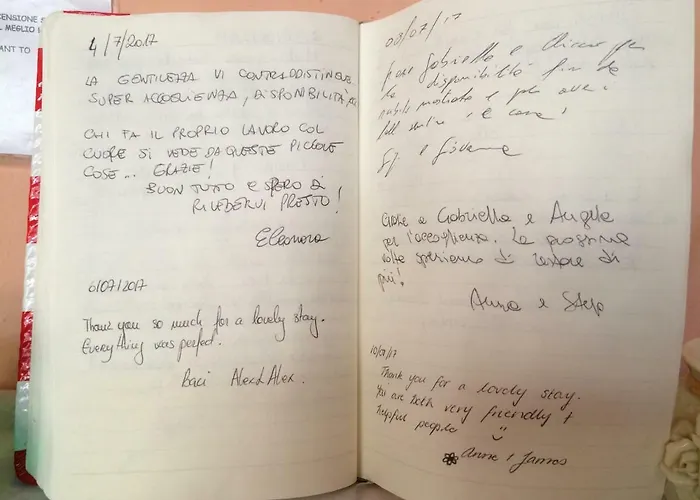 CENSIONE S
L MEGLIO I
ANT TO
4/7/2017
LA GENTILEZZA VI CONTRADDISTINGUE,
SUPER ACCOGLIENZA, DISPONIBILITÀ,
CHI FA IL PROPRIO LAVORO COL
CUORE SI VEDE DA QUESTE PICCOLE
COSE... GRAZIE!
BUON TUTTO E SPERO DI
RIVEDERVI PRESTO!
Eleonora
6/07/2017
Thank you so much for a lovely stay.
Everything was perfect.
Baci Alex & Alex.
08/07/17
Gabriella e
disponibilità
mostrata e
Grazie a Gabriella e Angelo
per l'accoglienza. La prossima
volta speriamo di restare di
più!
Anna e
10/07/17
Thank you for a lovely stay.
You are both very friendly +
helpful people
Anne &amp; James